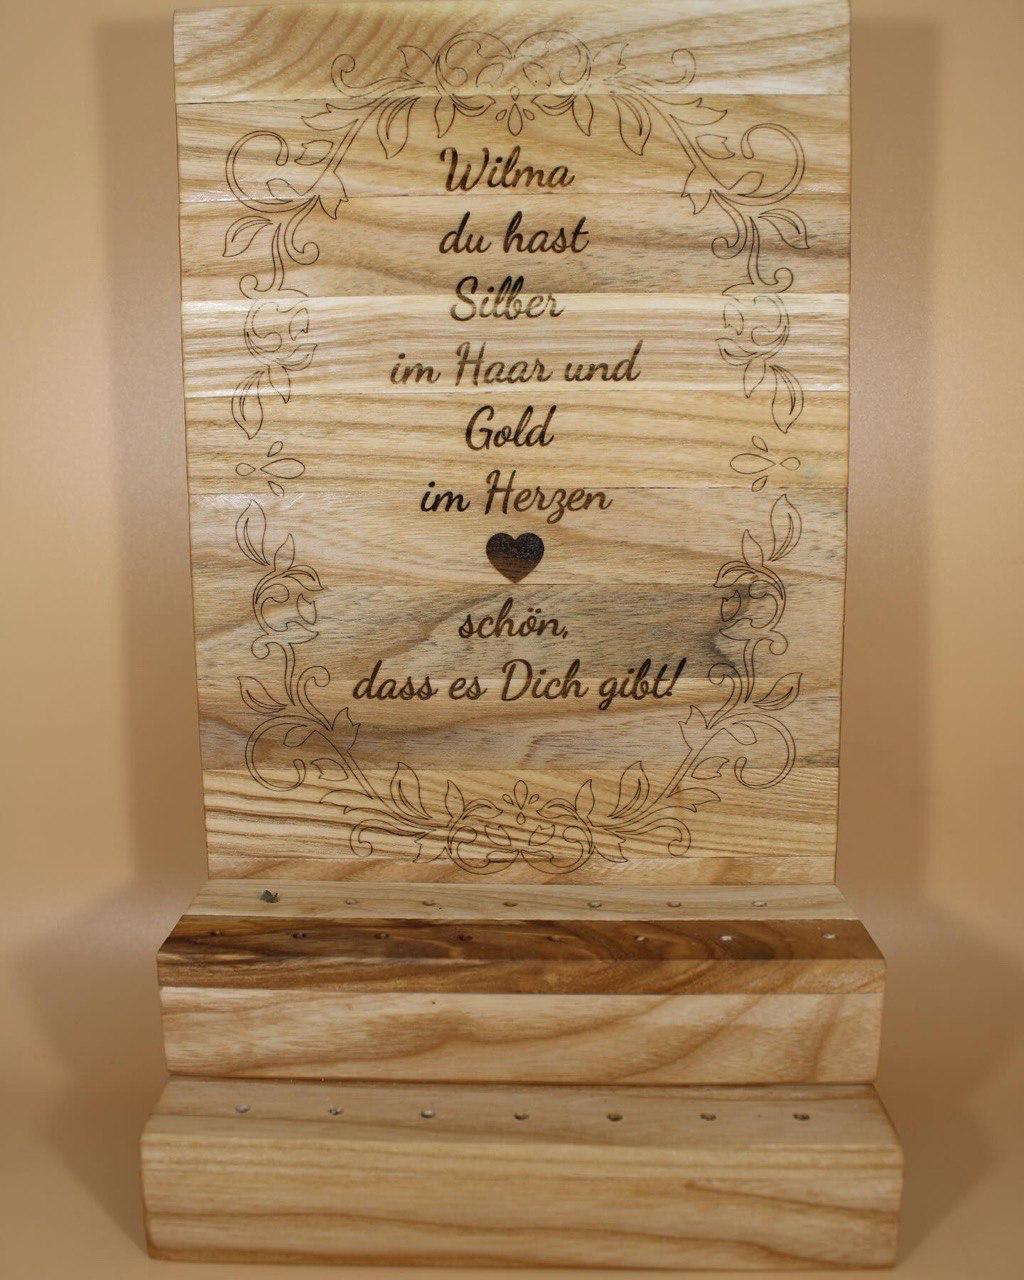 Wilma
du hast
Silber
im Haar und
Gold
im Herzen
schön,
dass es Dich gibt!